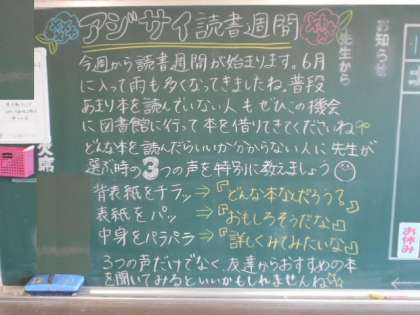 アジサイ読書週間
今週から読書週間が始まります。6月
に入って雨も多くなってきましたね。普段
あまり本を読んでいない人もぜひこの機会
に図書館に行って本を借りてきてくださいね
どんな本を読んだらいいか分からない人に先生が
選ぶ時の3つの声を特別に教えましょう
背表紙をチラッ→『どんな本なんだろう?』
表紙をパッ→『おもしろそうだな』
中身をパラパラ→『詳しくみてみたいな』
3つの声だけでなく、友達からおすすめの本
を聞いてみるといいかもしれませんね
先生から
お知らせ
欠席
お休み